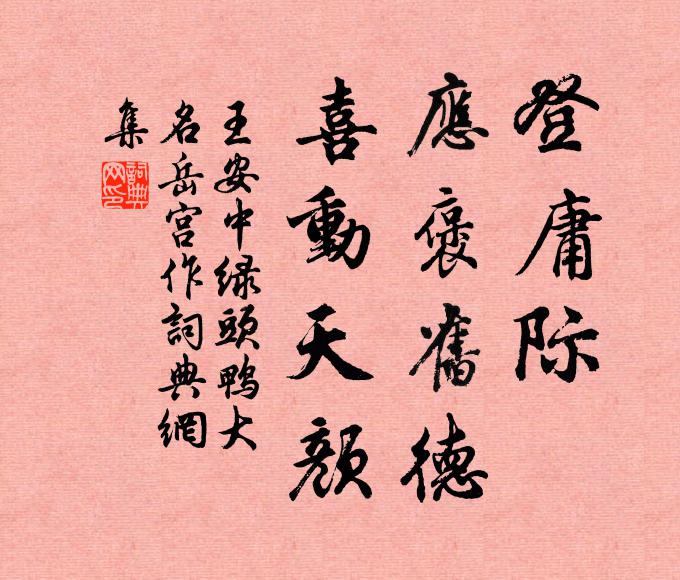 登庸际
應褒舊德
喜動天顏
王安中绿頭鴨大
名岳宫作詞典網
集
詞典
网印